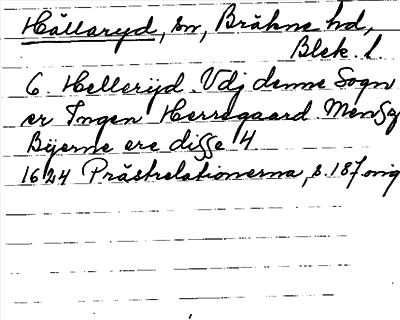 Hällaryd, sn, Bräkne hd,
Blek. l.
6. Hellerijd. Vdj denne Sogn
er Ingen Herregaard Men Sej
Bÿerne ere disse 4
1624 Prästrelationerna, s. 187 orig